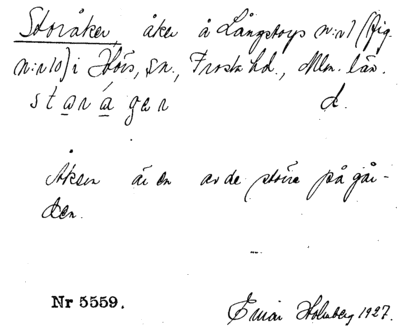 Storåker, åker å Långstorps n:r 1 (fig.
n:r 10) i Hörs, sn., Frosta hd., Mlm. län.
s t ɑ r á gər d.
Åkern är en av de större på går-
den.
Nr 5559.
Einar Holmberg 1927.